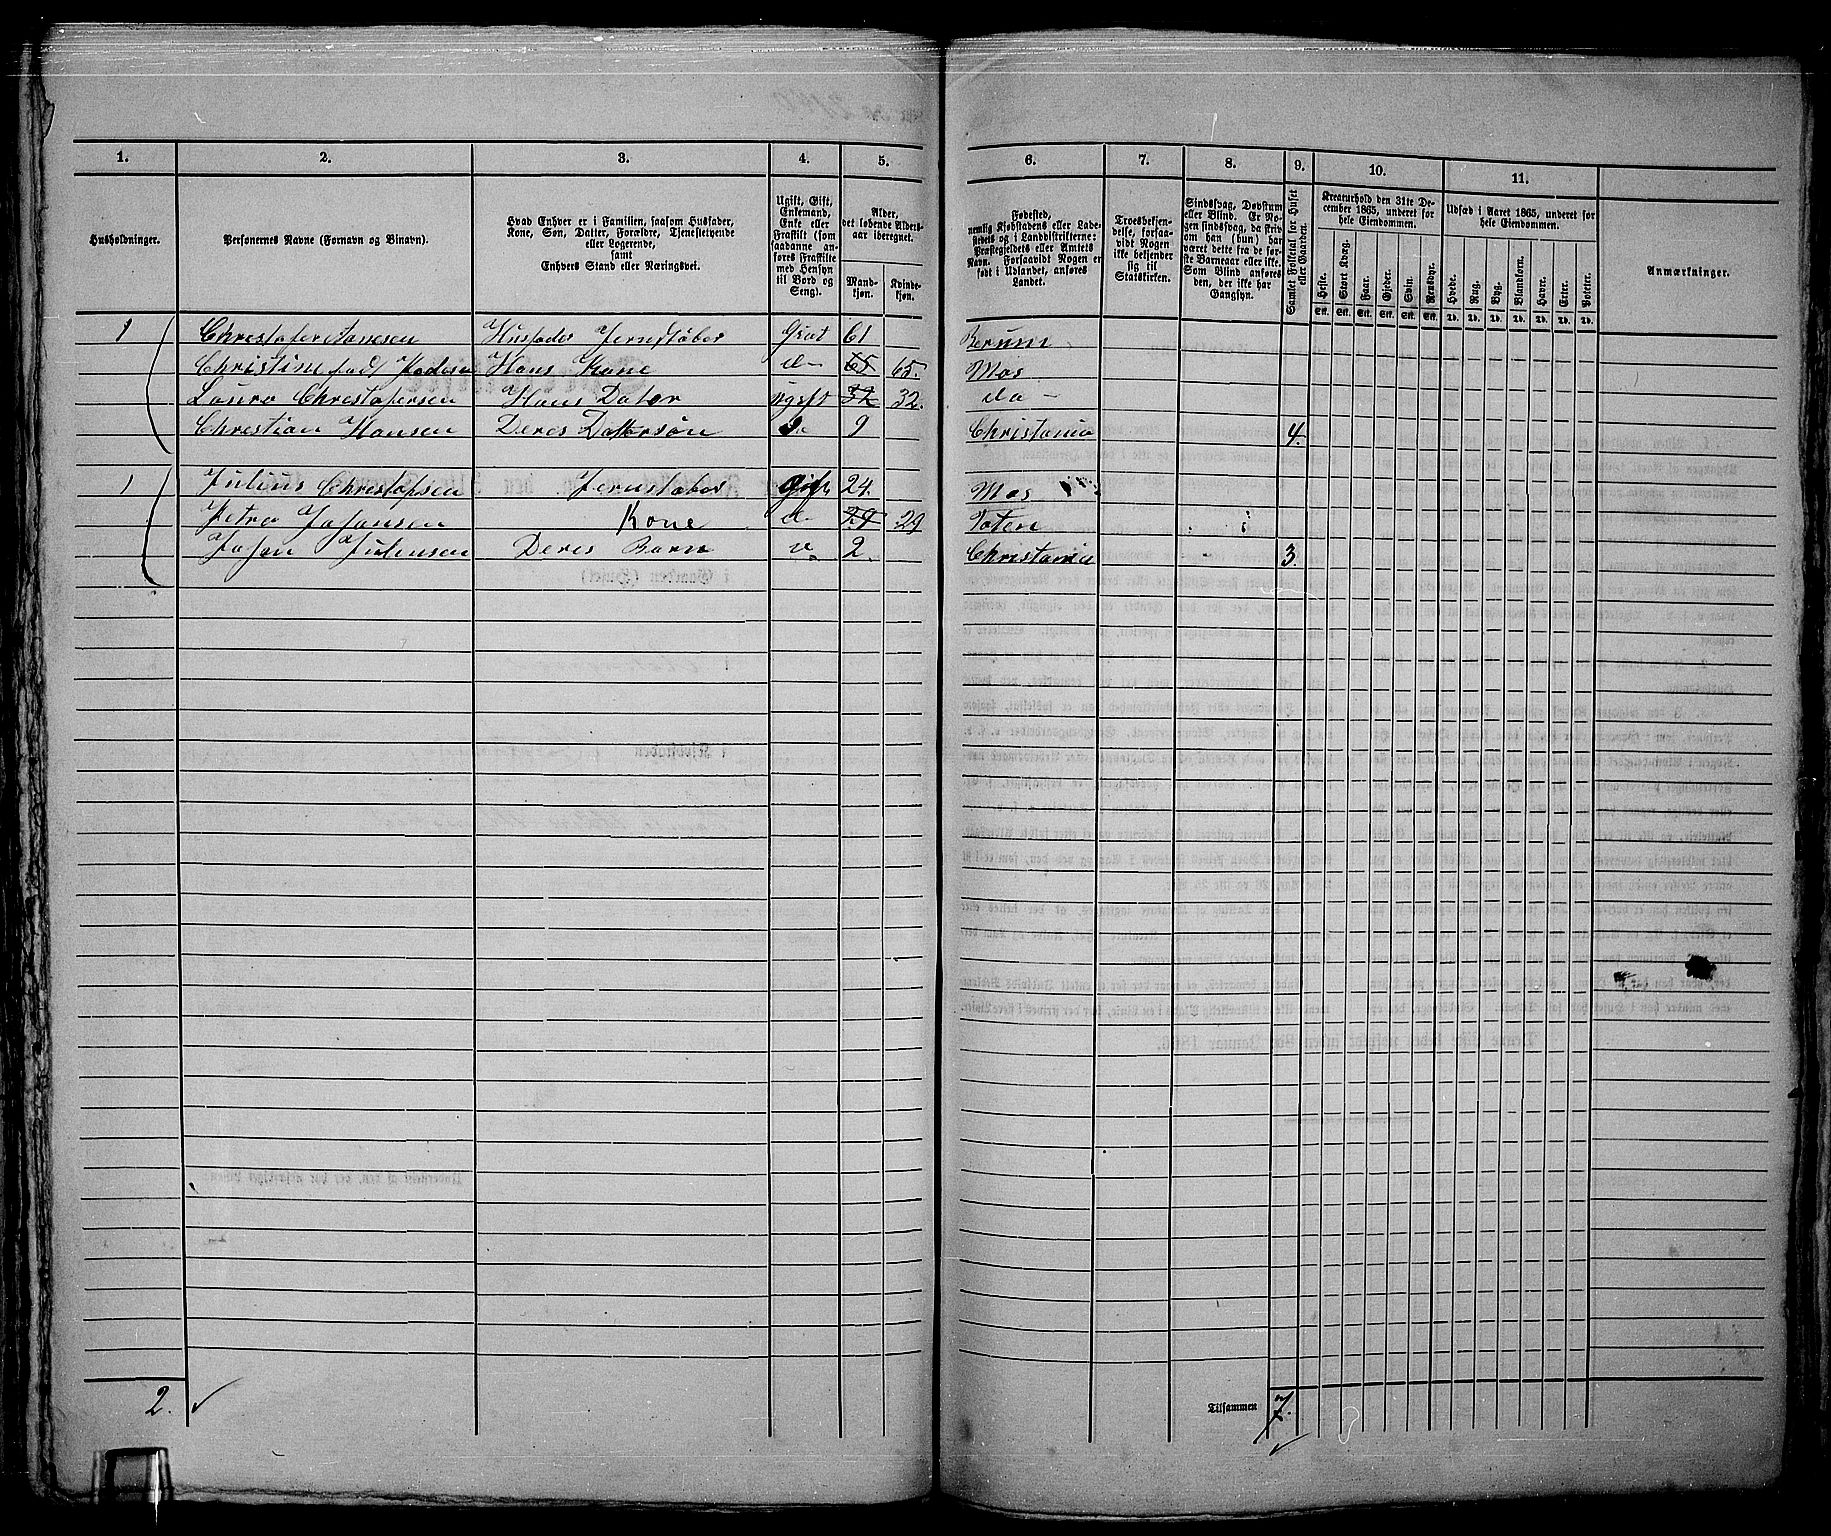 1. 2. 3. 4. 5. 6. 7. 8. 9. 10. 11.
Husholdninger.
Personernes Navne (Fornavn og Binavn).
Hvad Enhver er i Familien, saasom Husfader,
Kone, Søn, Datter, Forældre, Tjenestetyende
eller Logerende,
samt
Enhvers Stand eller Næringsvei.
Ugift, Gift,
Enkemand,
Enke eller
Fraskilt (som
saadanne an-
føres Fraskilte
med Hensyn
til Bord og
Seng).
Alder,
det løbende Alders-
aar iberegnet.
Mand-
kjøn.
Kvinde-
kjøn.
Fødested,
nemlig Kjøbstadens eller Lade-
stedets og i Landdistrikterne:
Præstegjeldets eller Amtets
Navn. Forsaavidt Nogen er
født i Udlandet, anføres
Landet.
Troesbekjen-
delse, forsaa-
vidt Nogen
ikke bekjender
sig til
Statskirken.
Sindssvag, Døvstum
eller Blind. Er No-
gen sindssvag, da skriv
om han (hun) har
været dette fra de før-
ste Barneaar eller ikke.
Som Blind anføres
den, der ikke har
Gangsyn.
Samlet Folketal for Huset
eller Gaarden.
Kreaturhold den 31te De-
cember 1865, underet for
hele Eiendommen.
Heste.
Stort Kvæg.
Faar.
Gjeder.
Svin.
Rensdyr.
Stk. Stk. Stk. Stk. Stk. Stk.
Udsæd i Aaret 1865, underet for
hele Eiendommen.
Hvede.
Rug.
Byg.
Blandkorn.
Havre.
Erter.
Poteter.
Td. Td. Td. Td. Td. Td. Td.
Anmærkninger.
1 Christofer Hansen Husfader Jernstøber Gift 61 Berum
Christine Hans Kone do 65 65. Mos
Laura Christofersen Hans Dater ugift 32 32. do
Christian Hansen Deres Dattersøn do 9 Christania 4.
1 Julius Christofsen Jernstøber Gift 24. Mos
Petra Johansen Kone do 29 29 Toten
Johan Juliusen Deres Barn 2. Christania 3.
2. Tilsammen 7.